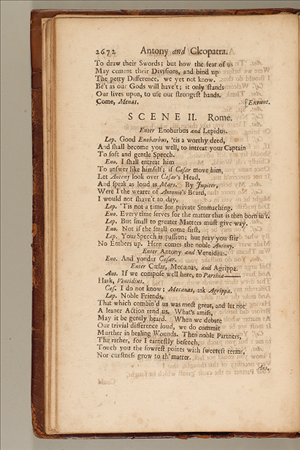 2672 Antony and Cleopatra.
To draw their Swords; but how the fear of us
May cement their Divisions, and bind up
The petty Difference, we yet not know.
Be't as our Gods will have't; it only stands
Our lives upon, to use our strongest hands.
Come, Menas. [Exeunt.
SCENE II. Rome.
Enter Enobarbus and Lepidus.
Lep. Good Enobarbus, 'tis a worthy deed,
And shall become you well, to intreat your Captain
To soft and gentle Speech.
Eno. I shall entreat him
To answer like himself; if Cæsar move him,
Let Antony look over Cæsar's Head,
And speak as loud as Mars. By Jupiter,
Were I the wearer of Antonio's Beard,
I would not shave't to day.
Lep. 'Tis not a time for private Stomaching.
Eno. Every time serves for the matter that is then born in't.
Lep. But small to greater Matters must give way.
Eno. Not if the small come first.
Lep. Your Speech is passion; but pray you stir
No Embers up. Here comes the noble Antony.
Enter Antony and Ventidius.
Eno. And yonder Cæsar.
Enter Cæsar, Mecænas, and Agrippa.
Ant. If we compose well here, to Parthia
Hark, Ventidius.
Cæs. I do not know; Mecænas, ask Agrippa.
Lep. Noble Friends,
That which combin'd us was most great, and let not
A leaner Action rend us. What's amiss,
May it be gently heard. When we debate
Our trivial difference loud, we do commit
Murther in healing Wounds. Then noble Partners,
The rather, for I earnestly beseech,
Touch you the sowrest points with sweetest terms,
Nor curstness grow to th' matter.
Ant.